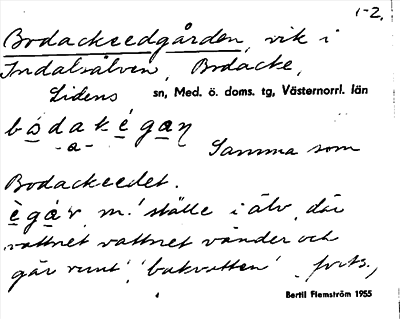 1-2,
Bodackeedgården, vik i
Indalsälven, Bodacke,
Lidens sn, Med. ö. doms. tg, Västernorrl. län
bódakégaŋ
-a-
Samma som
Bodackeedet.
ègar m. 'ställe i älv där
vattnet vattnet vänder och
går runt', 'bakvatten' forts.,
Bertil Flemström 1955